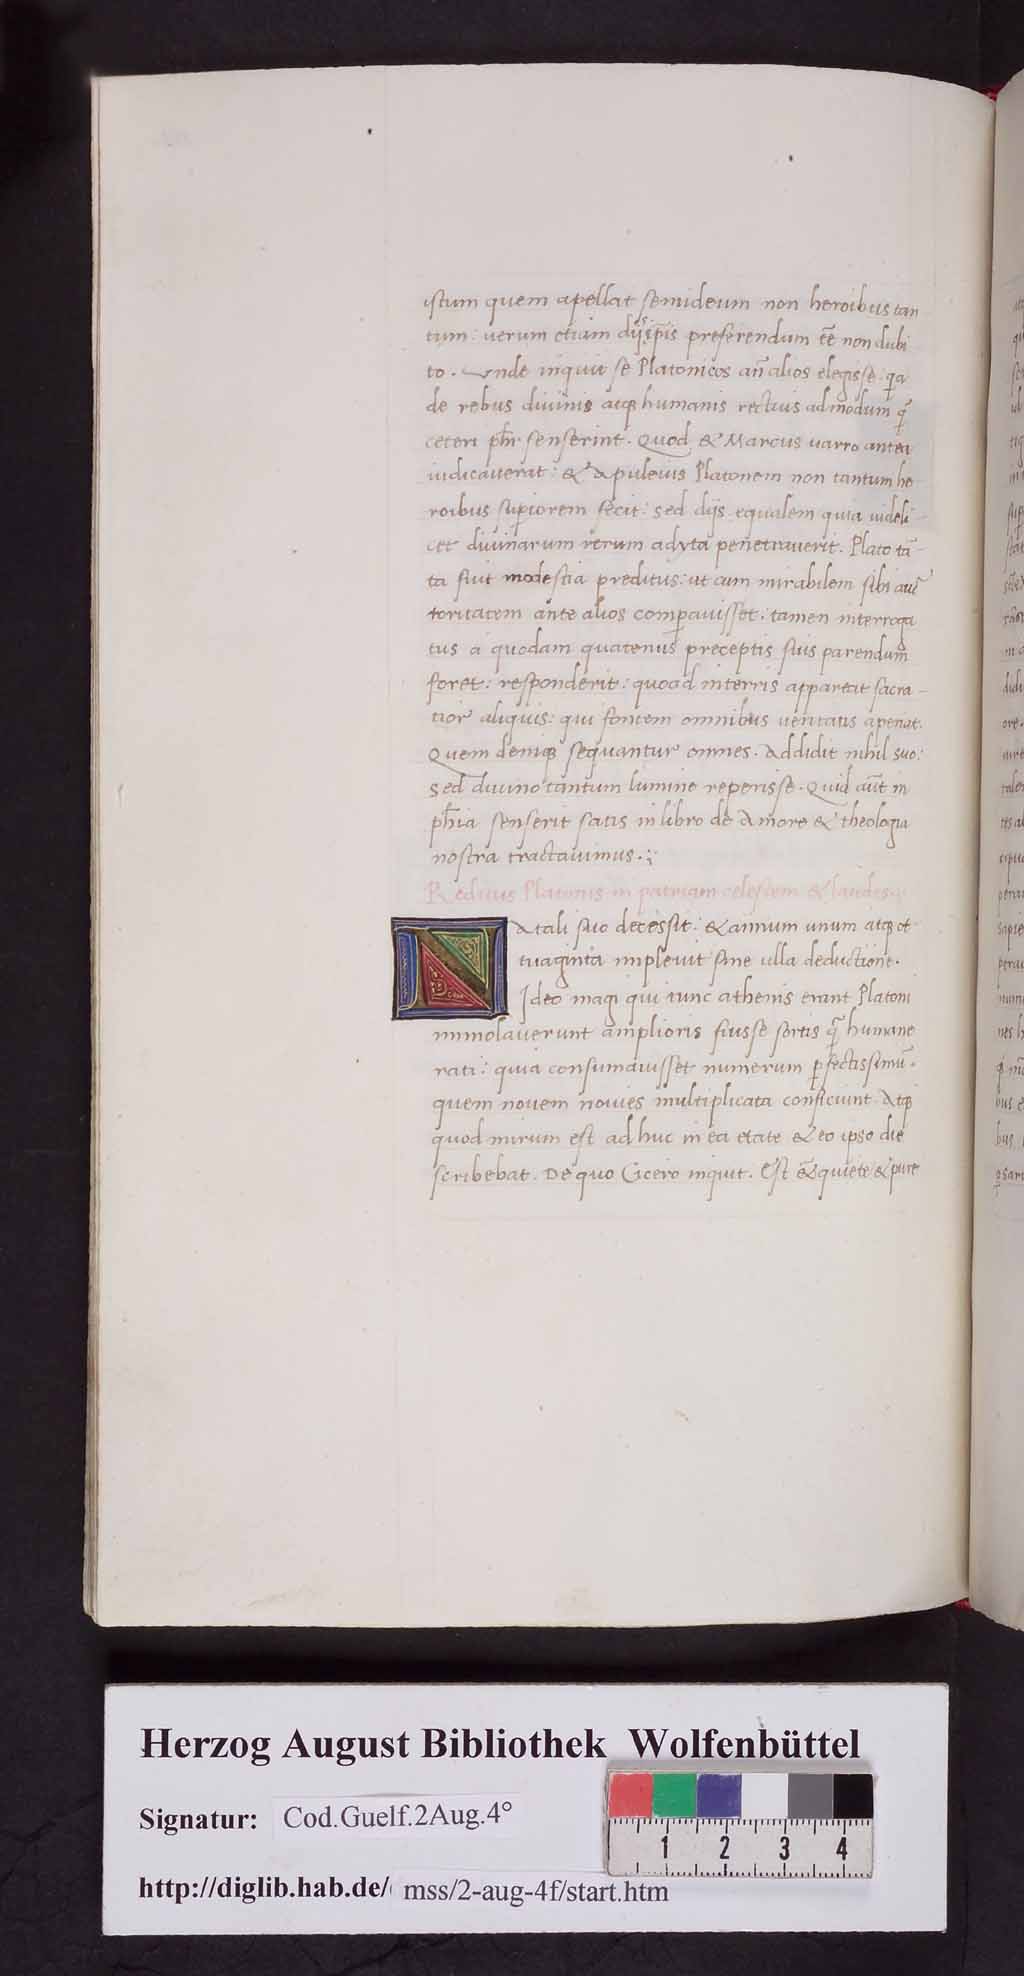 istum quem apellat semideum non heroibus tan
tum: uerum etiam dijs ip̄is preferendum eē̄ non dubi
to. Unde inquit se Platonicos an̄ alios elegisse: qa
de rebus diuinis atqꝫ humanis rectius admodum q̄
ceteri phī senserint. Quod & Marcus uarro antea
iudicauerat: & Apuleius Platonem non tantum he
roibus suꝑiorem fecit: sed dijs equalem quia uideli-
cet diuinarum rerum adyta penetrauerit. Plato tā-
ta fuit modestia preditus: ut cum mirabilem sibi auc̄
toritatem ante alios comꝑauisset: tamen interroga
tus a quodam quatenus preceptis suis parendum
foret: responderit: quoad interris appareat sacra-
tior aliquis: qui fontem omnibus ueritatis aperiat.
Quem deniqꝫ sequantur omnes. Addidit nihil suo:
sed diuino tantum lumine reperisse. Quid aūt in
phīa senserit satis in libro de Amore & theologia
nostra tractauimus.
Reditus Platonis in patriam celestem & laudes.
Natali suo decessit: & annum unum atqꝫ oc
tuaginta impleuit sine ulla deductione.
Ideo magi qui tunc athenis erant Platoni
immolauerunt amplioris fuisse sortis q̄ humane
rati: quia consumauisset numerum ꝑfectissimū.
quem nouem nouies multiplicata conficiunt. Atqꝫ
quod mirum est ad huc in ea etate & eo ipso die
scribebat. De quo Cicero inquit. Est & quiete & pure
Herzog August Bibliothek Wolfenbüttel
Signatur: Cod.Guelf.2Aug.4°
1 2 3 4
http://diglib.hab.de/ mss/2-aug-4f/start.htm